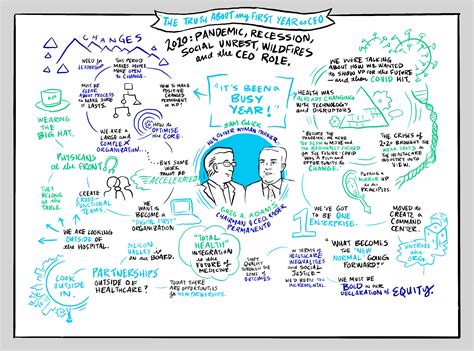 THE TRUTH ABOUT my FIRST YEAR as CEO
2020: PANDEMIC, RECESSION,
SOCIAL UNREST, WILDFIRES
and the CEO ROLE.
CHANGES
NEED for
LEADERSHIP
THIS PERIOD
MAKES HOPE
MORE OPEN
to CHANGE.
MUST BE
CLEAR
ABOUT PROCESS
to MAKE SURE
IT LASTS.
WHAT IS
POSITIVE NOW?
MAKE CHANGES
PERMANENT
WE ARE a
LARGE and
COMPLEX
ORGANIZATION.
HOW to
OPTIMISE
the
CORE
WEARING
THE
BIG HAT.
PHYSICIANS
at the FRONT!
THEY
BELONG
at the
TABLE.
CREATE
CROSS-
FUNCTIONAL
TEAMS
BUT SOME
must be
ACCELERATED
WE ARE LOOKING
OUTSIDE of
the HOSPITAL.
WANT to
BECOME a
"DIGITAL FIRST"
ORGANIZATION
SILICON
VALLEY is
on BOARD.
LOOK
OUTSIDE
IN.
PARTNERSHIPS
OUTSIDE OF
HEALTHCARE?
TODAY THERE
ARE OPPORTUNITIES
for NEW PARTNERSHIPS.
"IT'S BEEN a
BUSY
YEAR!"
SAM GLICK
HLS, OLIVER WYMAN PARTNER
GREG A. ADAMS
CHAIRMAN & CEO, KAISER
PERMANENTE
"TOTAL
HEALTH"
INTEGRATION
is the
FUTURE of
MEDICINE
SHIFT
QUALITY
THROUGH the
LENS of
OUTCOMES.
WE WERE TALKING
ABOUT HOW WE WANTED
to SHOW UP for the FUTURE
and then
COVID HIT.
HEALTH WAS
ALREADY CHANGING
WITH TECHNOLOGY
and DISRUPTORS
"BEFORE the
PANDEMIC, we were
TOO SLOW to MOVE and
THE CRISES of
2020 BROUGHT the
WEAK SPOTS in
the HEALTHCARE
INDUSTRY INTO
VIEW.
PUTTING a
MIRROR to
WE'VE GOT
to BE ONE
ENTERPRISE.
MOVED to
CREATE a
COMMAND
CENTER.
WHAT BECOMES
the "NEW
NORMAL" GOING
FORWARD?
in TERMS of
HEALTHCARE
INEQUALITIES
and SOCIAL
JUSTICE -
WE'D BEEN too
INCREMENTAL.
WE MUST BE
BOLD in OUR
DECLARATION of EQUITY.